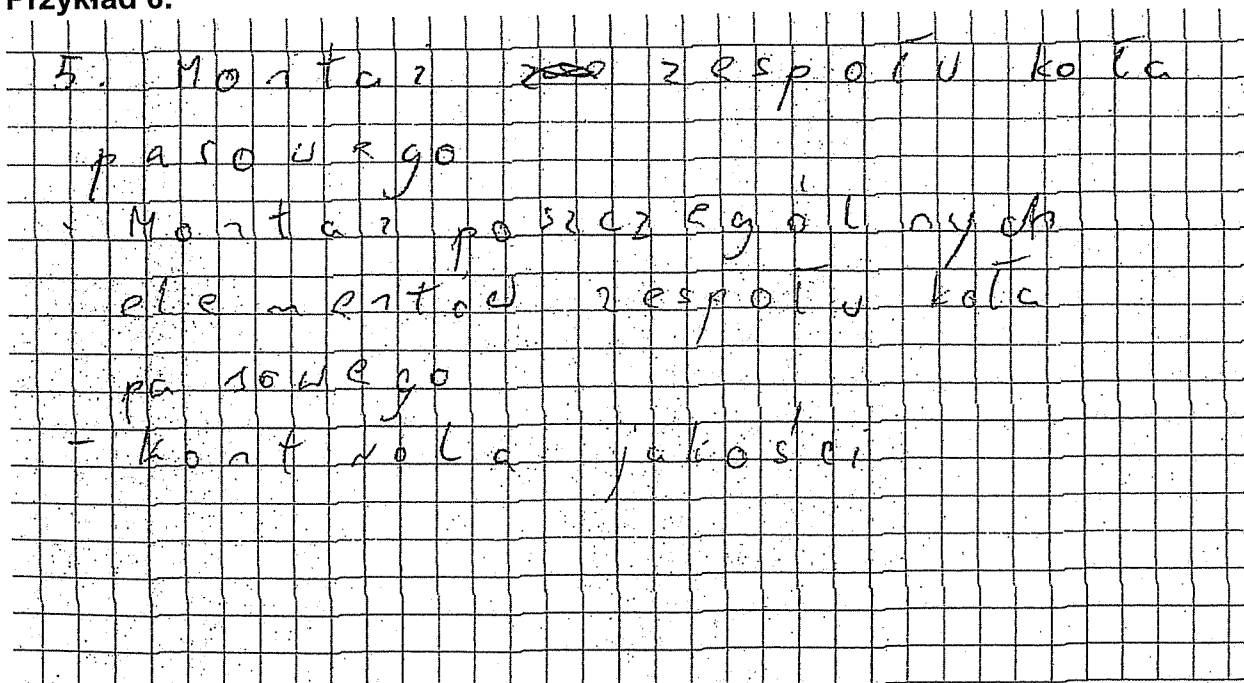 Przykład 6.
5. Montaż zespołu koła
pasowego
- Montaż poszczególnych
elementów zespołu koła
pasowego
- kontrola jakości